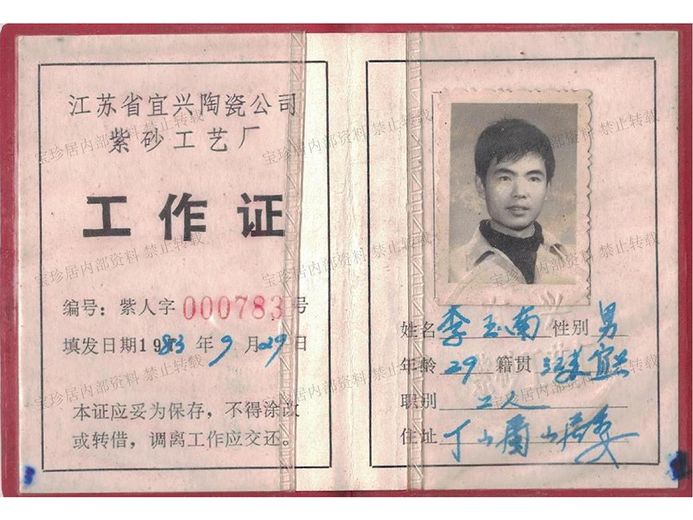 江苏省宜兴陶瓷公司
紫砂工艺厂
工作证
编号：紫人字000783号
填发日期1983年9月29日
本证应妥为保存，不得涂改
或转借，调离工作应交还。
姓名 李玉南 性别 男
年龄 29 籍贯 江苏宜兴
职别 工人
住址 丁山蜀山居委
宝珍居内部资料 禁止转载
宝珍居内部资料 禁止转载
宝珍居内部资料 禁止转载
宝珍居内部资料 禁止转载
宝珍居内部资料 禁止转载
宝珍居内部资料 禁止转载